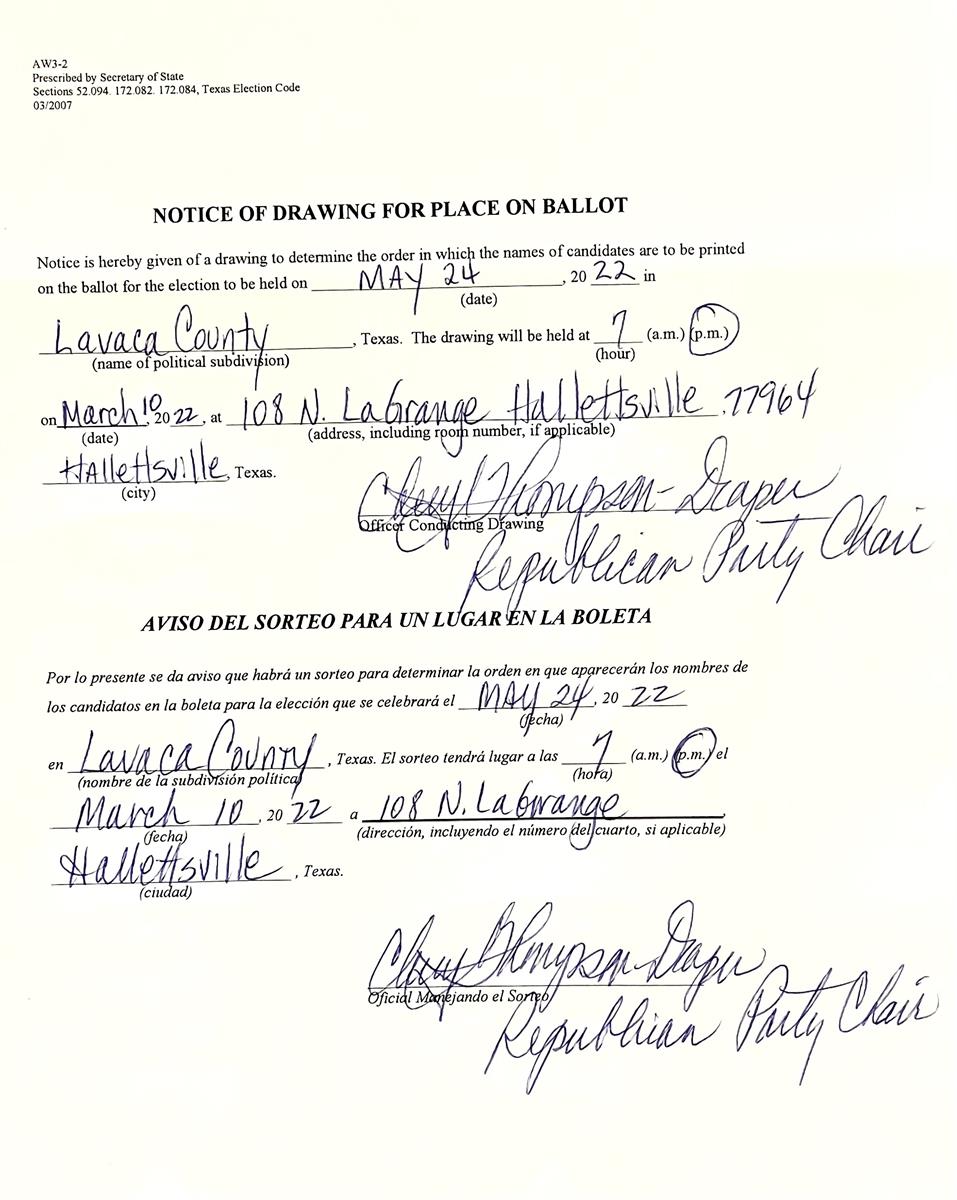 AW3-2
Prescribed by Secretary of State
Sections 52.094. 172.082. 172.084, Texas Election Code
03/2007
NOTICE OF DRAWING FOR PLACE ON BALLOT
Notice is hereby given of a drawing to determine the order in which the names of candidates are to be printed
on the ballot for the election to be held on MAY 24, 2022 in
(date)
Lavaca County, Texas. The drawing will be held at 7 (a.m.) (p.m.)
(name of political subdivision) (hour)
on March 10, 2022, at 108 N. LaGrange Hallettsville, 77964
(date) (address, including room number, if applicable)
Hallettsville, Texas.
(city)
Cheryl Thompson-Draper
Officer Conducting Drawing
Republican Party Chair
AVISO DEL SORTEO PARA UN LUGAR EN LA BOLETA
Por lo presente se da aviso que habrá un sorteo para determinar la orden en que aparecerán los nombres de
los candidatos en la boleta para la elección que se celebrará el MAY 24, 2022
(fecha)
en Lavaca County, Texas. El sorteo tendrá lugar a las 7 (a.m.) (p.m.) el
(nombre de la subdivisión política) (hora)
March 10, 2022 a 108 N. LaGrange,
(fecha) (dirección, incluyendo el número del cuarto, si aplicable)
Hallettsville, Texas.
(ciudad)
Cheryl Thompson-Draper
Oficial Manejando el Sorteo
Republican Party Chair